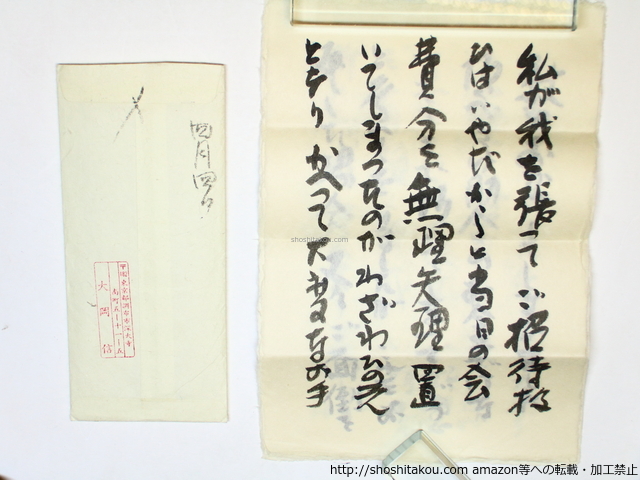 私が我を張ってご招待扱
ひはいやだからと当日の会
費分を無理矢理置
いてしまったのがわざわひの元
となり かへって大
四月四日
大岡信
shoshitakou.com
http://shoshitakou.com amazon等への転載・加工禁止